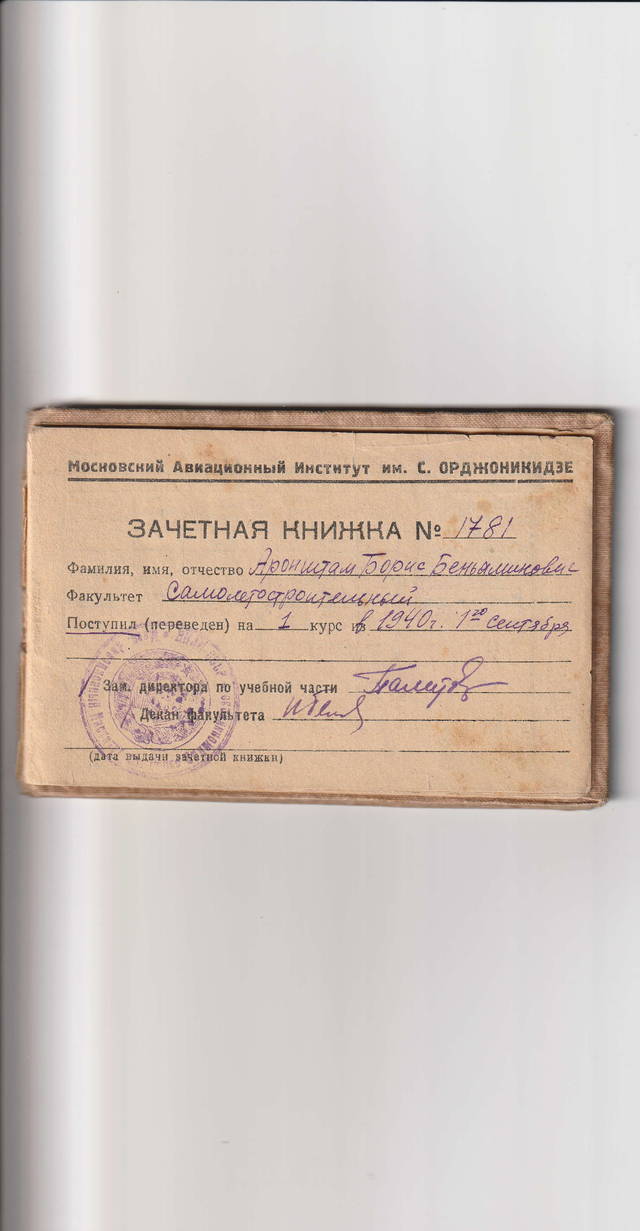 Московский Авиационный Институт им. С. ОРДЖОНИКИДЗЕ
ЗАЧЕТНАЯ КНИЖКА № 1781
Фамилия, имя, отчество Аронштам Борис Беньяминович
Факультет Самолетостроительный
Поступил (переведен) на 1 курс в 1940 г. 1го сентября
Зам. директора по учебной части
Декан факультета
(дата выдачи зачетной книжки)